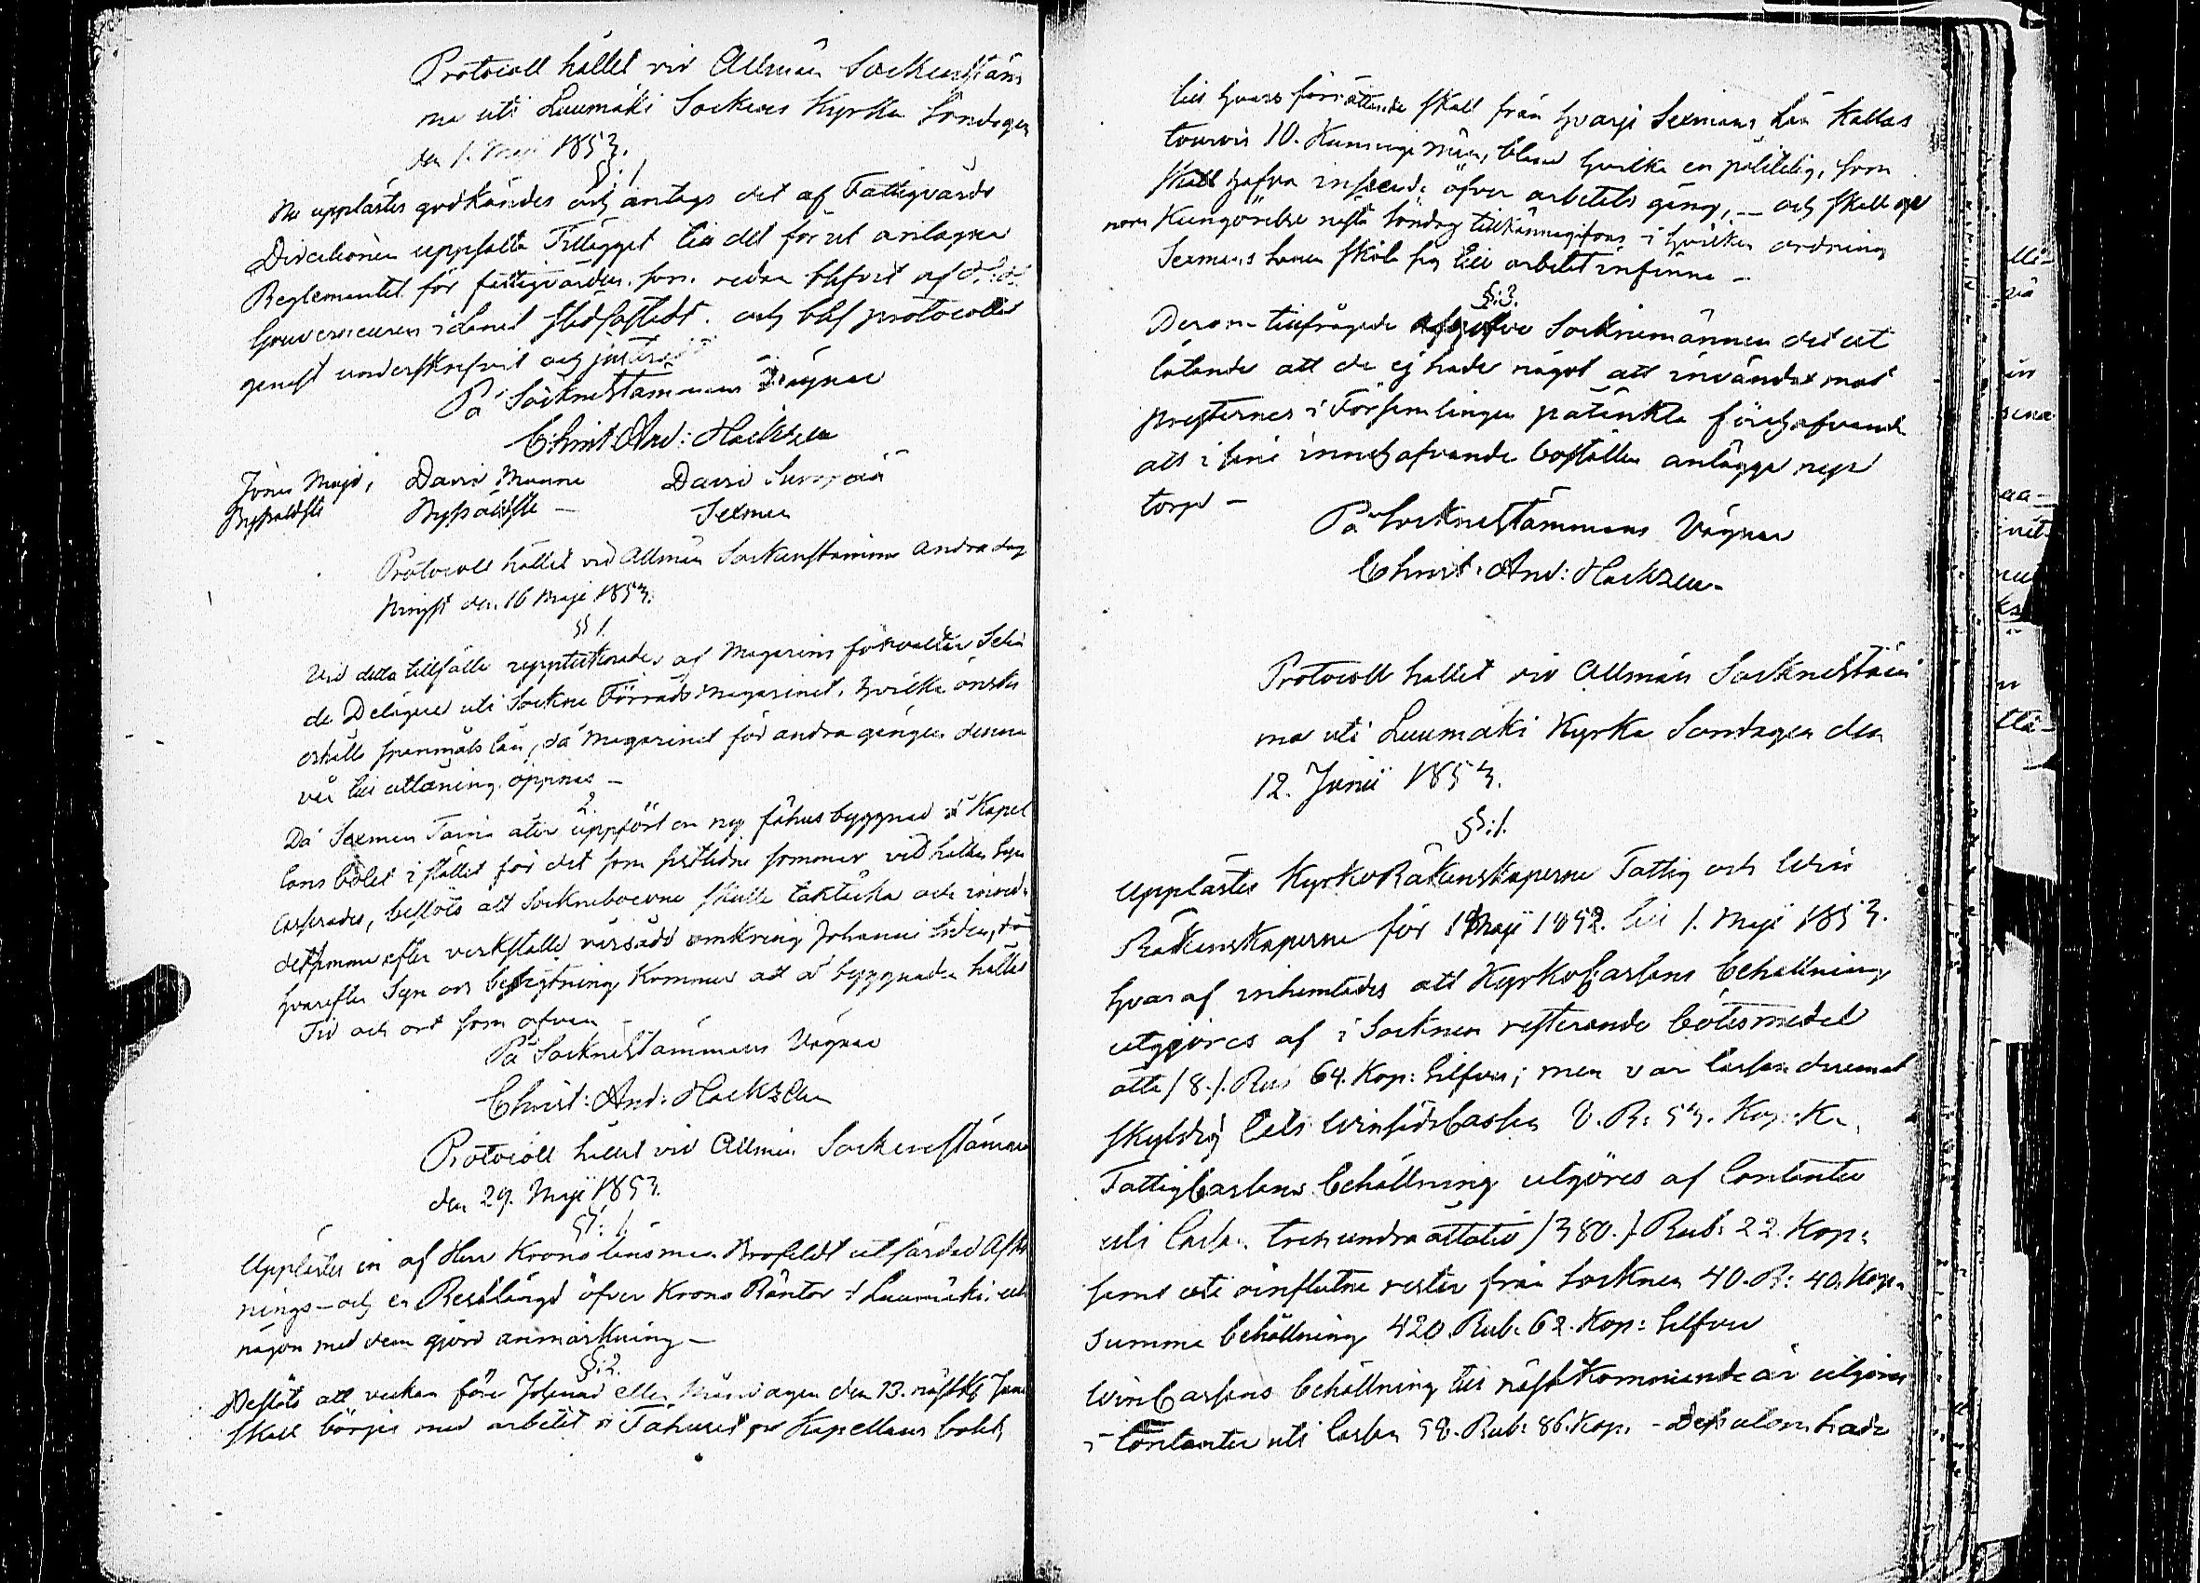 Protocoll hållet vid Allmän Sockenstäm
ma uti Luumäki Sockens Kyrka Söndagen
den 1. Maji 1853.
§. 1
Nu upplästes godkändes och antogs det af Fattigvårds
Directionen uppsatta Tillägget till det förut antagna
Reglementet för fattigvården, som redan blifvit af
Gouverneuren i länet stadfästadt. och blef protocollet
genast underskrifvit och justeradt
På Socknestämmans Vägnar
Christ: And: Hackzell
Jöns Maji, David Munne David
Byåldste Byåldste — Sexman
Protocoll hållet vid Allmän Sockenstämma Andra dag
Pingst den 16 Maji 1853.
§ 1.
Vid detta tillfälle uppteknades af Magasins förvaltar
de Delägare uti Sockne Förråds magasinet, hvilka önska
erhålla spanmåls lån, då Magasinet för andra gången denna
vår till utlåning öppnas —
2.
Då Sexman Taina åter uppfört en ny fähus byggnad å Kapel
lans bolet i stället för det som sistledne sommar vid hållen Syn
casserades, beslöts att Socknebocrne skulle taktäcka och inreda
detsamma efter verkställd vårsådd omkring Johanni tiden,
hvarefter Syn och besigtning kommer att å byggnaden hållas
Tid och ort som ofvan —
På Socknestämmans Vägnar
Christ: And: Hackzell
Protocoll hållet vid Allmän Sockenstämma
den 29. Maji 1853.
§: 1.
Upplästes en af Herr Krono länsman Brofeldt utfärdad Afkort
nings- och en Restlängd öfver Krono Räntor i Luumäki, utan
någon med dem gjord anmärkning —
§: 2.
Beslöts att veckan före Johanni eller Måndagen den 13. nästk. Juni
skall börjas med arbetet å Fähuset på Kapellans bolet,
till hvars förrättande skall från hvarje Sexmans län kallas
tourvis 10. Kunnige Män, bland hvilka en pålitelig, som
skall hafva inseende öfver arbetets gång, — och skall ge
nom Kungörelse nästa Söndag tillkännagifvas i hvilken ordning
Sexmans länen skola sig till arbetet infinna —
§: 3.
Derom tillfrågade afgåfvo Socknemännen det ut
låtande att de ej hade något att invända mot
presternes i Församlingen påtänkta förehafvande
att i sine innehafvande boställen anlägga nya
torp —
På Socknestämmans Vägnar
Christ: And: Hackzell
Protocoll hållet vid Allmän Sockenstäm
ma uti Luumäki Kyrka Söndagen den
12. Junii 1853.
§: 1.
Upplästes Kyrko Räkenskaperne Fattig och Win
Räkenskaperne för 1 Maji 1852. till 1. Maji 1853.
hvaraf inhemtades att Kyrko Cassans behållning
utgjöres af i Socknen resterande bötesmedel
åtta /8./. Rub 64. Kop: Silfver; men var Cassan deremot
skyldig till Vinsäds Cassan 8. R: 53. Kop.
Fattig Cassans behållning utgöres af Contanter
uti Cassan trehundra åttatio /380./ Rub: 22. Kop:
samt uti oinflutne rester från Socknen 40. R: 40. Kop.
Summa behållning 420. Rub: 62. Kop: Silfver
Win Cassans behållning till nästkommande år utgöres
i Contanter uti Cassan 58. Rub: 86. Kop. — Dessutom hade